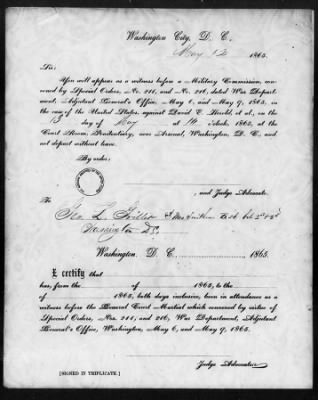 Washington City, D. C.,
May 12 1865.
Sir:
You will appear as a witness before a Military Commission, con-
vened by Special Orders, Nos. 211, and No. 216, dated War Depart-
ment, Adjutant General's Office, May 6, and May 9, 1865, in
the case of the United States, against David E. Herold, et al., on the
13 day of May at 10 o'clock, 1865, at the
Court Room, Penitentiary, near Arsenal, Washington, D. C., and
not depart without leave.
By order:
and Judge Advocate.
To
Geo L.
Washington D.C.
Washington, D. C. 1865.
I certify that
has, from the of 1865, to the
of 1865, both days inclusive, been in attendance as a
witness before the General Court Martial which convened by virtue of
Special Orders, Nos. 211, and 216, War Department, Adjutant
General's Office, Washington, May 6, and May 9, 1865.
Judge Advocate.
[SIGNED IN TRIPLICATE.]